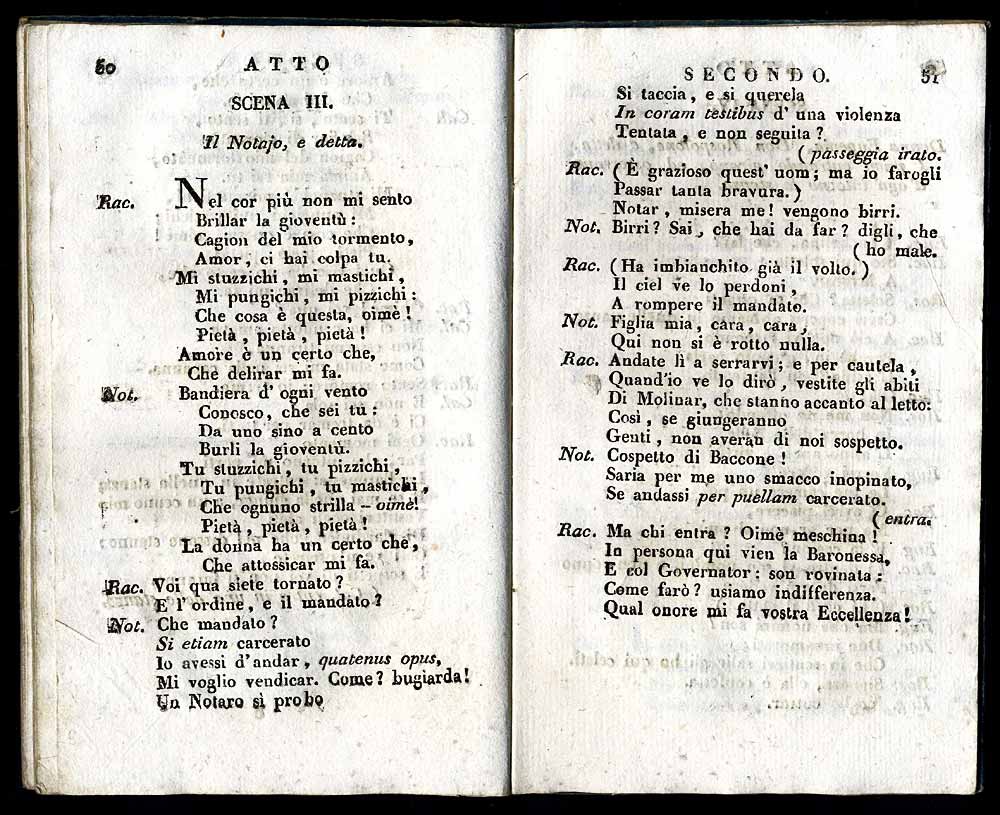 50
ATTO
SCENA III.
Il Notajo, e detta.
Rac. Nel cor più non mi sento
Brillar la gioventù:
Cagion del mio tormento,
Amor, ci hai colpa tu.
Mi stuzzichi, mi mastichi,
Mi pungichi, mi pizzichi:
Che cosa è questa, oimè!
Pietà, pietà, pietà!
Amore è un certo che,
Che delirar mi fa.
Not. Bandiera d' ogni vento
Conosco, che sei tu:
Da uno sino a cento
Burli la gioventù.
Tu stuzzichi, tu pizzichi,
Tu pungichi, tu mastichi,
Che ognuno strilla - oimè!
Pietà, pietà, pietà!
La donna ha un certo che,
Che attossicar mi fa.
Rac. Voi qua siete tornato?
E l' ordine, e il mandato?
Not. Che mandato?
Si etiam carcerato
Io avessi d'andar, quatenus opus,
Mi voglio vendicar. Come? bugiarda!
Un Notaro sì probo
SECONDO.
51
Si taccia, e si querela
In coram testibus d' una violenza
Tentata, e non seguita?
(passeggia irato.
Rac. (È grazioso quest' uom; ma io farogli
Passar tanta bravura.)
Notar, misera me! vengono birri.
Not. Birri? Sai, che hai da far? digli, che
(ho male.
Rac. (Ha imbianchito già il volto.)
Il ciel ve lo perdoni,
A rompere il mandato.
Not. Figlia mia, cara, cara,
Qui non si è rotto nulla.
Rac. Andate lì a serrarvi; e per cautela,
Quand'io ve lo dirò, vestite gli abiti
Di Molinar, che stanno accanto al letto:
Così, se giungeranno
Genti, non averan di noi sospetto.
Not. Cospetto di Baccone!
Saria per me uno smacco inopinato,
Se andassi per puellam carcerato.
(entra.
Rac. Ma chi entra? Oimè meschina!
In persona qui vien la Baronessa,
E col Governator: son rovinata:
Come farò? usiamo indifferenza.
Qual onore mi fa vostra Eccellenza!